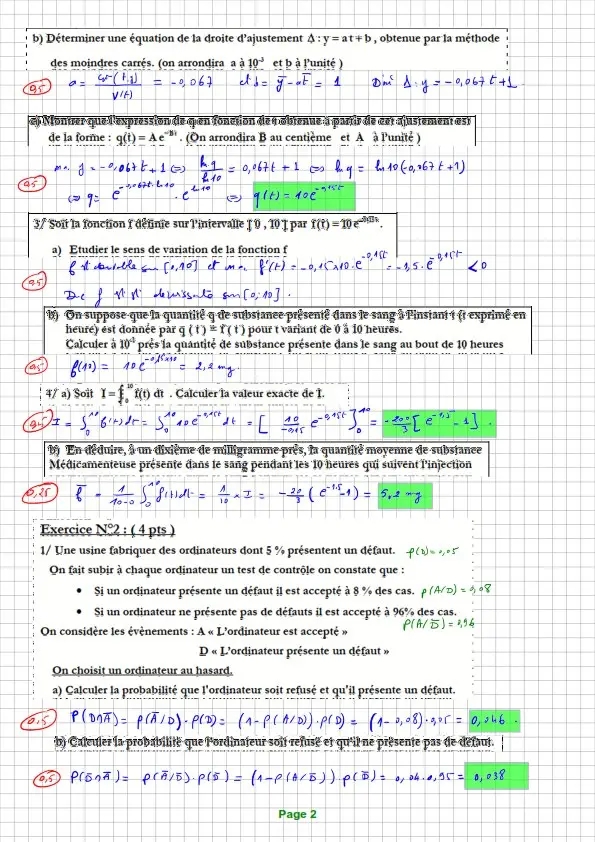 b) Déterminer une équation de la droite d'ajustement Δ : y = a t + b , obtenue par la méthode
des moindres carrés. (on arrondira a à 10⁻³ et b à l'unité )
0,5 a = cov(t,y)/V(t) = -0,067 et b = y̅ - a t̅ = 1 D'où Δ: y = -0,067t + 1.
c) Montrer que l'expression de q en fonction de t obtenue à partir de cet ajustement est
de la forme : q(t) = A e⁻ᴮᵗ . (On arrondira B au centième et A à l'unité )
0,5 y = -0,067t + 1 ⇔ ln q / ln 10 = -0,067t + 1 ⇔ ln q = ln 10 (-0,067t + 1)
⇔ q = e^(-0,067t.ln10) . e^(ln 10) ⇔ q(t) = 10 e^(-0,15t)
3/ Soit la fonction f définie sur l'intervalle [ 0 , 10 ] par f(t) = 10 e^(-0,15t) .
a) Etudier le sens de variation de la fonction f
0,5 f est dérivable sur [0,10] et f'(t) = -0,15×10.e^(-0,15t) = -1,5.e^(-0,15t) < 0
Donc f est décroissante sur [0,10].
b) On suppose que la quantité q de substance présente dans le sang à l'instant t (t exprimé en
heure) est donnée par q ( t ) = f ( t ) pour t variant de 0 à 10 heures.
Calculer à 10⁻¹ près la quantité de substance présente dans le sang au bout de 10 heures
0,5 f(10) = 10 e^(-0,15×10) = 2,2 mg.
4/ a) Soit I = ∫₀¹⁰ f(t) dt . Calculer la valeur exacte de I.
I = ∫₀¹⁰ f(t) dt = ∫₀¹⁰ 10 e^(-0,15t) dt = [ 10/-0,15 e^(-0,15t) ]₀¹⁰ = -200/3 [ e^(-1,5) - 1 ] .
b) En déduire, à un dixième de milligramme près, la quantité moyenne de substance
Médicamenteuse présente dans le sang pendant les 10 heures qui suivent l'injection
0,25 f̅ = 1/(10-0) ∫₀¹⁰ f(t) dt = 1/10 × I = -20/3 ( e^(-1,5) - 1 ) = 5,2 mg
Exercice N°2 : ( 4 pts )
1/ Une usine fabriquer des ordinateurs dont 5 % présentent un défaut. p(D) = 0,05
On fait subir à chaque ordinateur un test de contrôle on constate que :
• Si un ordinateur présente un défaut il est accepté à 8 % des cas. p(A/D) = 0,08
• Si un ordinateur ne présente pas de défauts il est accepté à 96% des cas.
p(A/D̅) = 0,96
On considère les évènements : A « L'ordinateur est accepté »
D « L'ordinateur présente un défaut »
On choisit un ordinateur au hasard.
a) Calculer la probabilité que l'ordinateur soit refusé et qu'il présente un défaut.
0,5 P(D∩A̅) = p(A̅/D).p(D) = (1-p(A/D)).p(D) = (1-0,08).0,05 = 0,046 .
b) Calculer la probabilité que l'ordinateur soit refusé et qu'il ne présente pas de défaut.
0,5 P(D̅∩A̅) = p(A̅/D̅).p(D̅) = (1-p(A/D̅)) p(D̅) = 0,04.0,95 = 0,038
Page 2